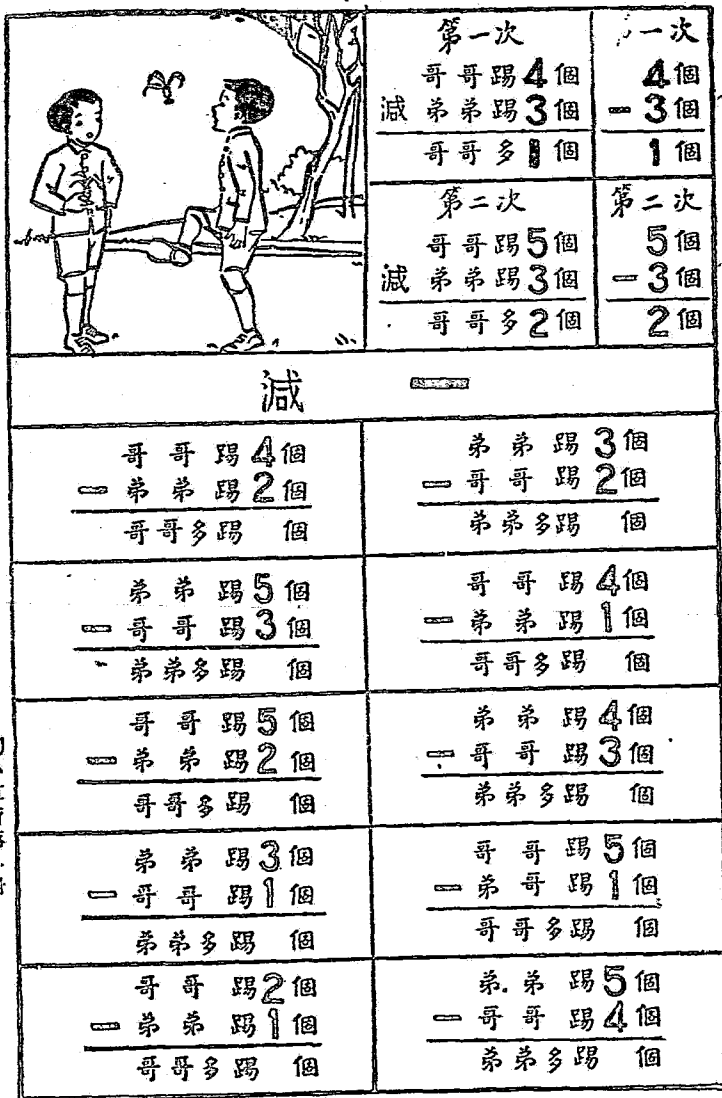 第一次
哥哥踢4個
減 弟弟踢3個
哥哥多1個
一次
4個
－3個
1個
第二次
哥哥踢5個
減 弟弟踢3個
哥哥多2個
第二次
5個
－3個
2個
減 －
哥哥踢4個
－弟弟踢2個
哥哥多踢 個
弟弟踢3個
－哥哥踢2個
弟弟多踢 個
弟弟踢5個
－哥哥踢3個
弟弟多踢 個
哥哥踢4個
－弟弟踢1個
哥哥多踢 個
哥哥踢5個
－弟弟踢2個
哥哥多踢 個
弟弟踢4個
－哥哥踢3個
弟弟多踢 個
弟弟踢3個
－哥哥踢1個
弟弟多踢 個
哥哥踢5個
－弟哥踢1個
哥哥多踢 個
哥哥踢2個
－弟弟踢1個
哥哥多踢 個
弟弟踢5個
－哥哥踢4個
弟弟多踢 個